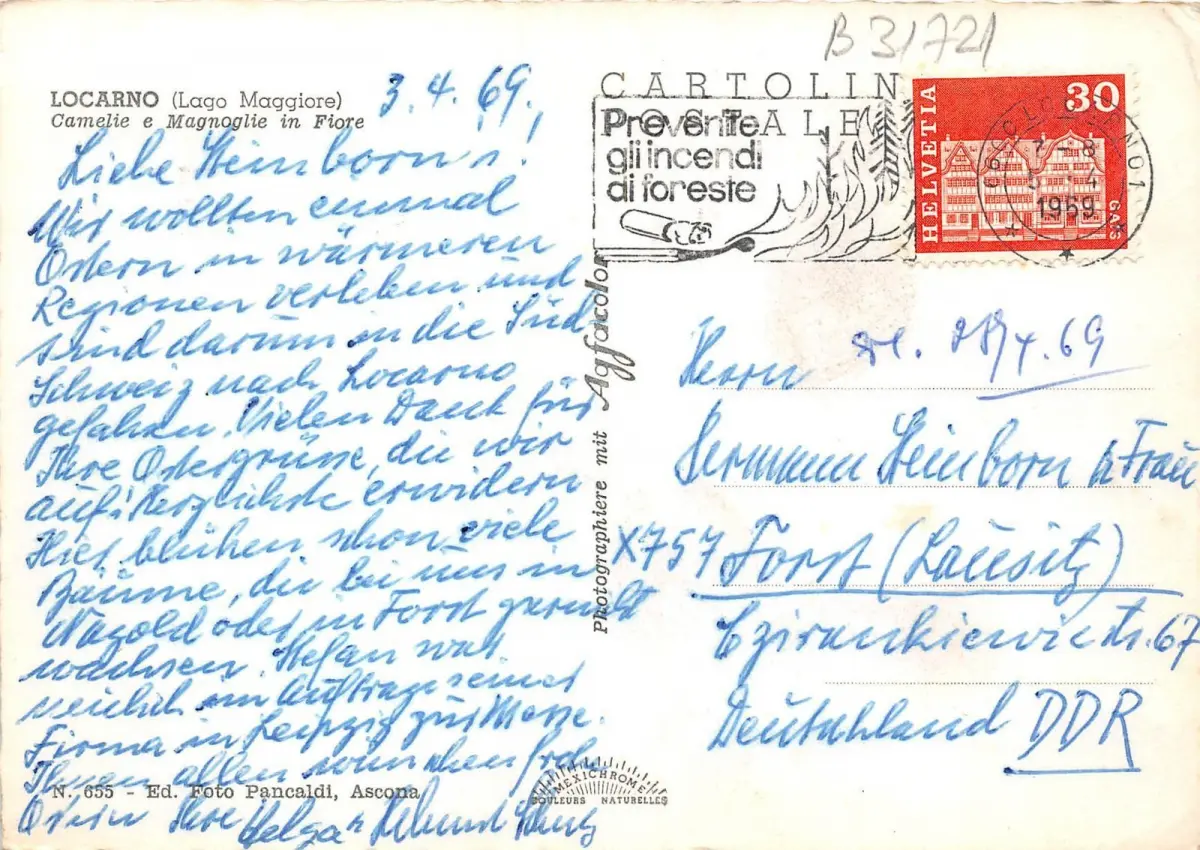 B 31721
LOCARNO (Lago Maggiore)
Camelie e Magnoglie in Fiore
3.4.69.
Liebe Steinborns!
Wir wollten einmal
Ostern in wärmeren
Regionen verleben und
sind darum in die Süd
Schweiz nach Locarno
gefahren. Vielen Dank für
Ihre Ostergrüsse, die wir
aufs Herzlichste erwidern
Hier blühen schon viele
Bäume, die bei uns in
Nagold oder in Forst garnicht
wachsen. Stefan war
neulich im Auftrage seiner
Firma in Leipzig zur Messe.
Ihnen allen wünschen frohe
N. 655 - Ed. Foto Pancaldi, Ascona
Ostern Ihre Helga u Helmut
Photographiere mit Agfacolor
MEXICHROME
COULEURS NATURELLES
CARTOLIN
POSTALE
Prevenite
gli incendi
di foreste
HELVETIA
30
GAIS
LOCARNO 1
7-8
1969
28/4.69
Herrn
Hermann Steinborn u Frau
X757 Forst (Lausitz)
67
Deutschland DDR